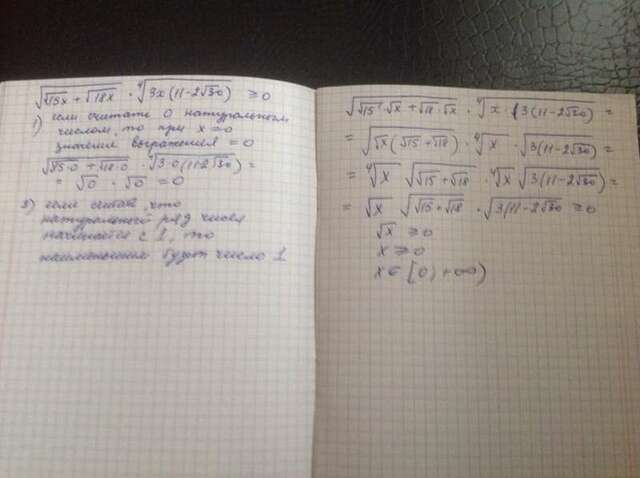 √(√15x + √18x) · ⁴√(3x(11-2√30)) ≥ 0
1) если считать 0 натуральным
числом, то при x = 0
значение выражения = 0
√(√15·0 + √18·0) · ⁴√(3·0(11-2√30)) =
= √0 · √0 = 0
2) если считать, что
натуральный ряд чисел
начинается с 1, то
наименьшим будет число 1
√(√15·√x + √18·√x) · ⁴√(x · (3(11-2√30))) =
= √(√x(√15+√18)) · ⁴√x · √(3(11-2√30)) =
= ⁴√x √(√15+√18) · ⁴√x √(3(11-2√30)) =
= √x √(√15+√18) · √(3(11-2√30)) ≥ 0
√x ≥ 0
x ≥ 0
x ∈ [0; +∞)